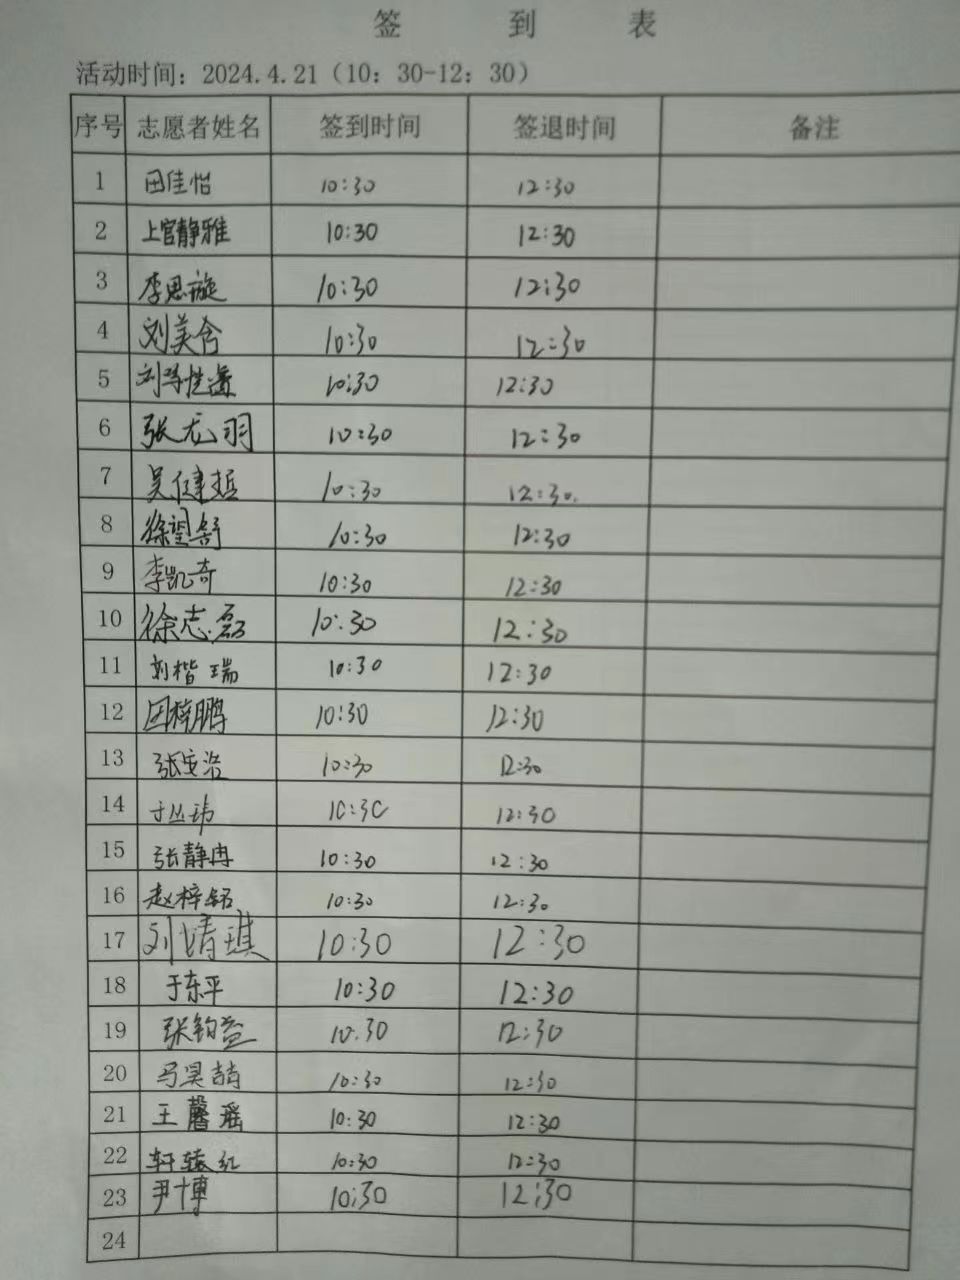 签到表
活动时间：2024.4.21（10：30-12：30）
序号 志愿者姓名 签到时间 签退时间 备注
1 田佳怡 10:30 12:30
2 上官静雅 10:30 12:30
3 李思璇 10:30 12:30
4 刘美含 10:30 12:30
5 刘 10:30 12:30
6 张龙羽 10:30 12:30
7 吴健哲 10:30 12:30
8 徐望舒 10:30 12:30
9 李凯奇 10:30 12:30
10 徐志磊 10:30 12:30
11 刘楷瑞 10:30 12:30
12 田梓鹏 10:30 12:30
13 张安浩 10:30 12:30
14 于丛玮 10:30 12:30
15 张静冉 10:30 12:30
16 赵梓铭 10:30 12:30
17 刘清琪 10:30 12:30
18 于东平 10:30 12:30
19 张钧益 10:30 12:30
20 马昊喆 10:30 12:30
21 王馨瑶 10:30 12:30
22 轩辕红 10:30 12:30
23 尹博 10:30 12:30
24